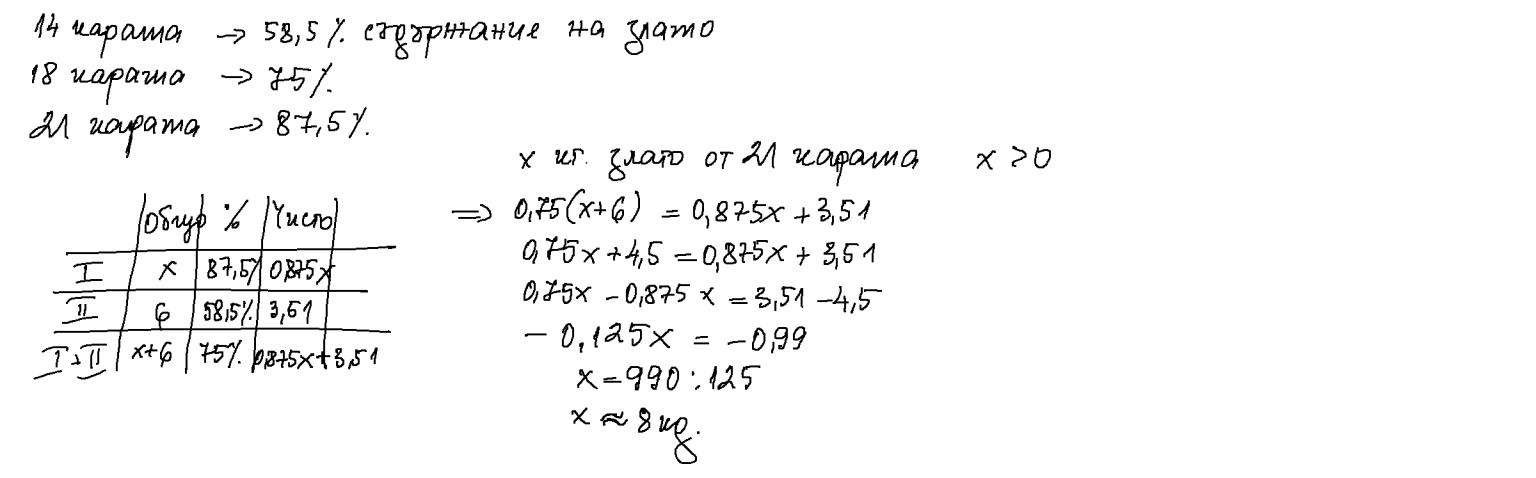 14 карата → 58,5 % съдържание на злато
18 карата → 75 %
21 карата → 87,5 %.
x кг. злато от 21 карата x > 0
Общо % Чисто
I x 87,5% 0,875x
II 6 58,5% 3,51
I+II x+6 75% 0,875x+3,51
⇒ 0,75(x+6) = 0,875x + 3,51
0,75x + 4,5 = 0,875x + 3,51
0,75x - 0,875x = 3,51 - 4,5
- 0,125x = -0,99
x = 990 : 125
x ≈ 8 кг.